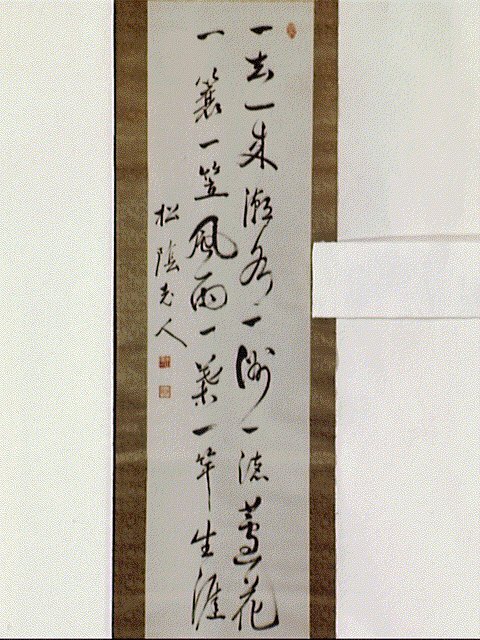 一去一来潮各一洲一漉蘆花
一簑一笠風雨一葉一竿生涯
松陰老人